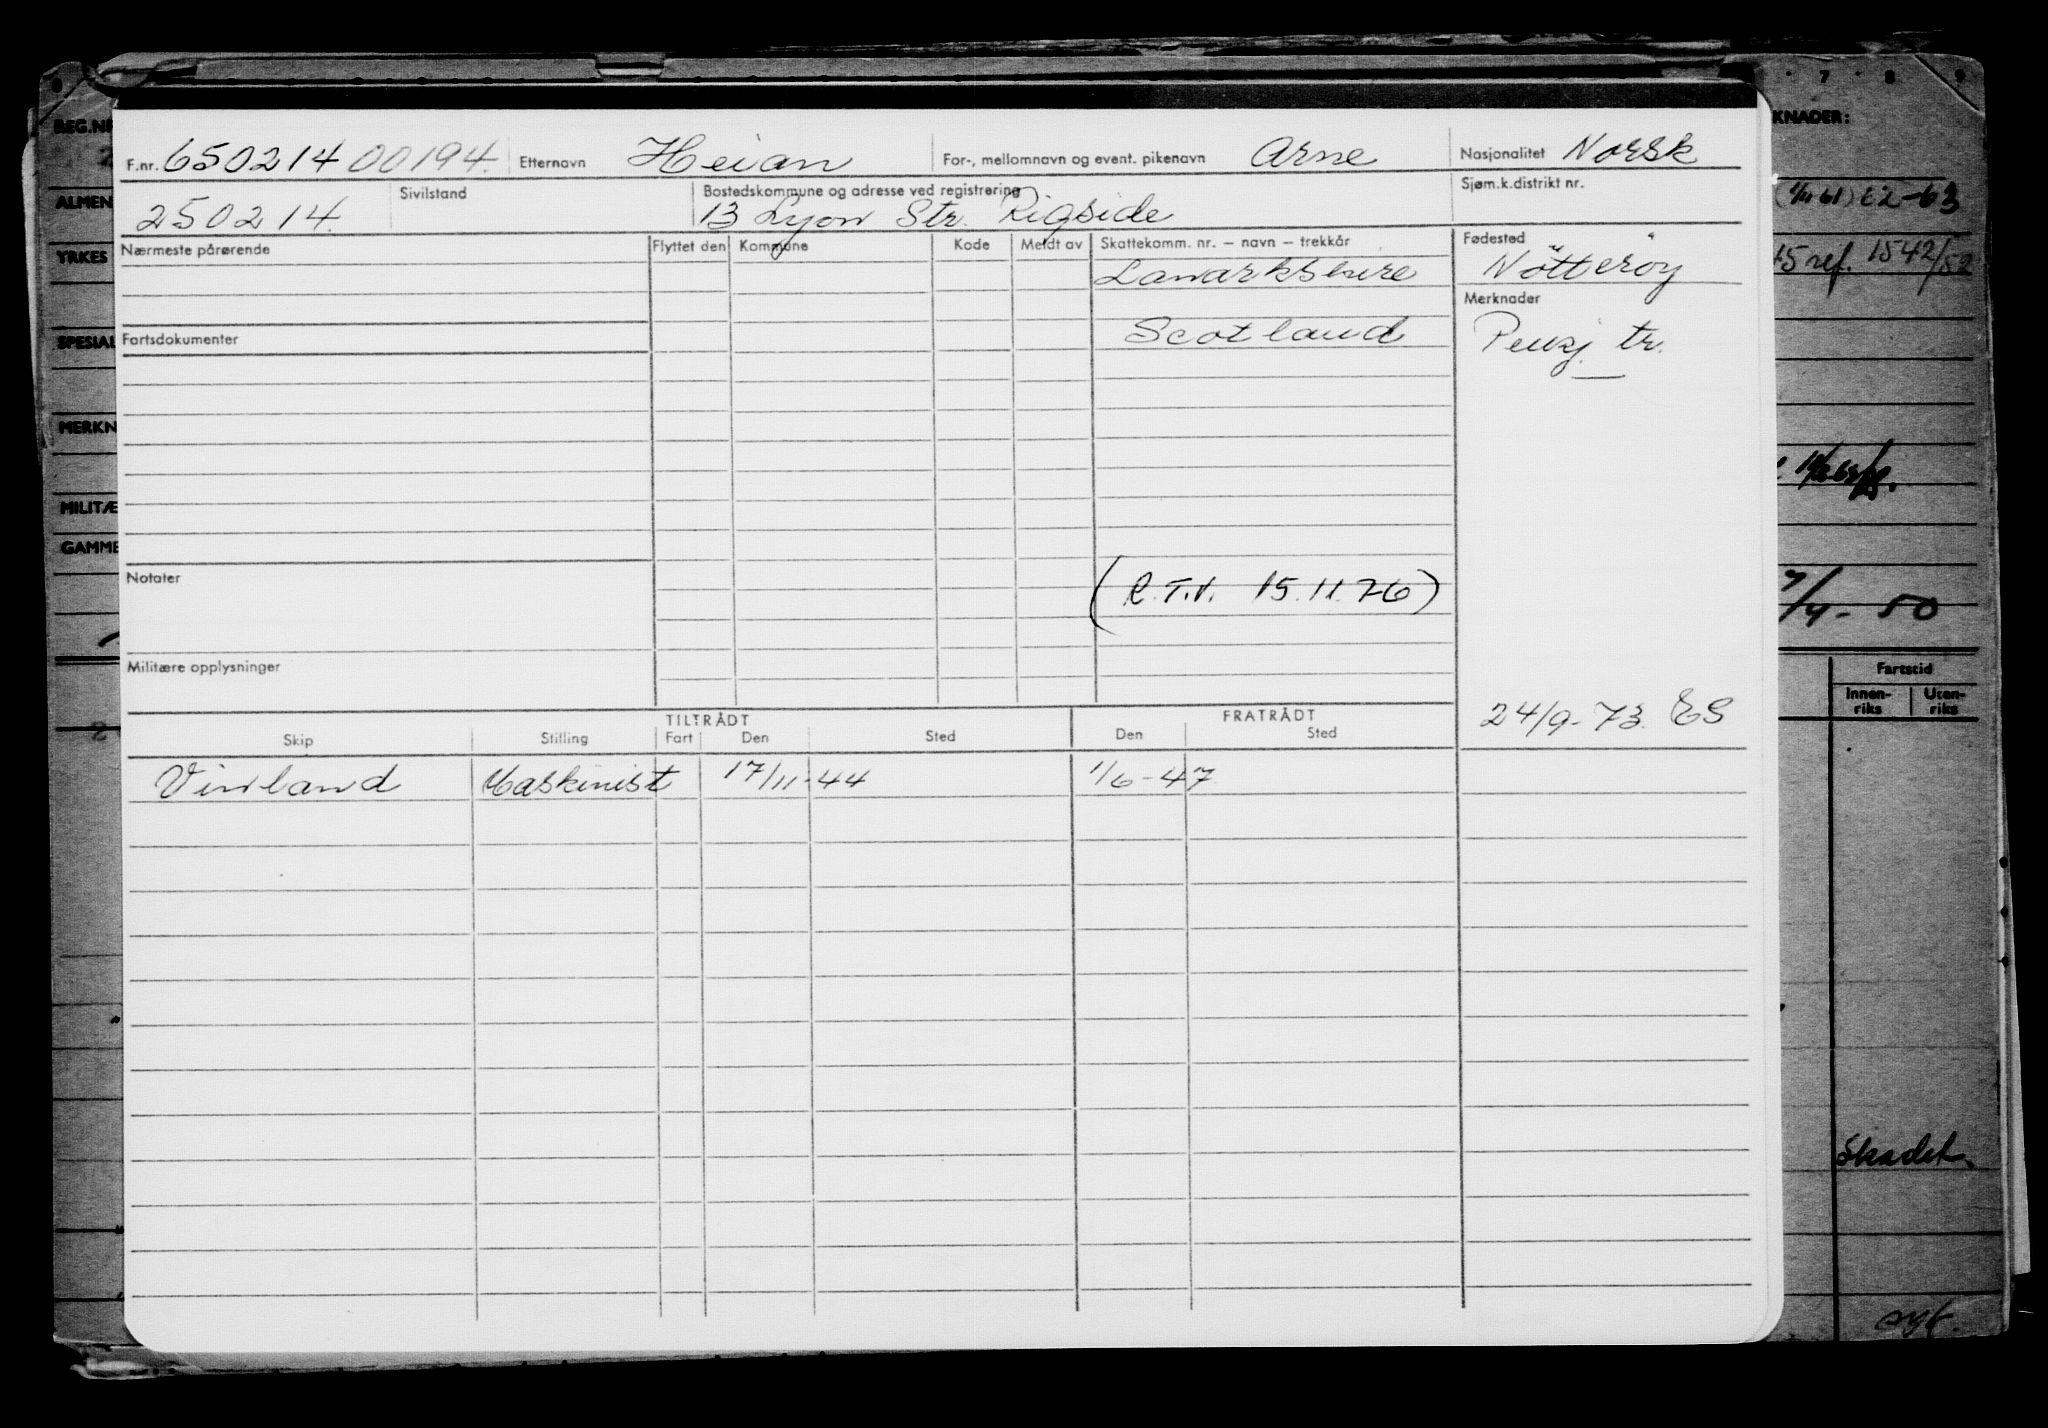 7 8 9
REG.NR
KNADER:
F.nr. 65021400194. Etternavn Heian For-, mellomnavn og event. pikenavn Arne Nasjonalitet Norsk
250214. Sivilstand Bostedskommune og adresse ved registrering 13 Lyon Str. Rigside Sjøm.k.distrikt nr.
ALMEN
62-63
Nærmeste pårørende Flyttet den Kommune Kode Meldt av Skattekomm. nr. – navn – trekkår Fødested
YRKES
Lanarkshire Nötteröy
45 ref. 1542/52
Merknader
Fartsdokumenter Scotland Pensj. tr.
SPESIAL
MERKN
MILITÆ
GAMME
Notater (R.T.V. 15.11.76)
7/4-50
Militære opplysninger
Fartstid
Innen-riks Uten-riks
24/9-73. ES
TILTRÅDT FRATRÅDT
Skip Stilling Fart Den Sted Den Sted
Vinland Maskinist 17/11-44 1/6-47
Skadet.
syk.